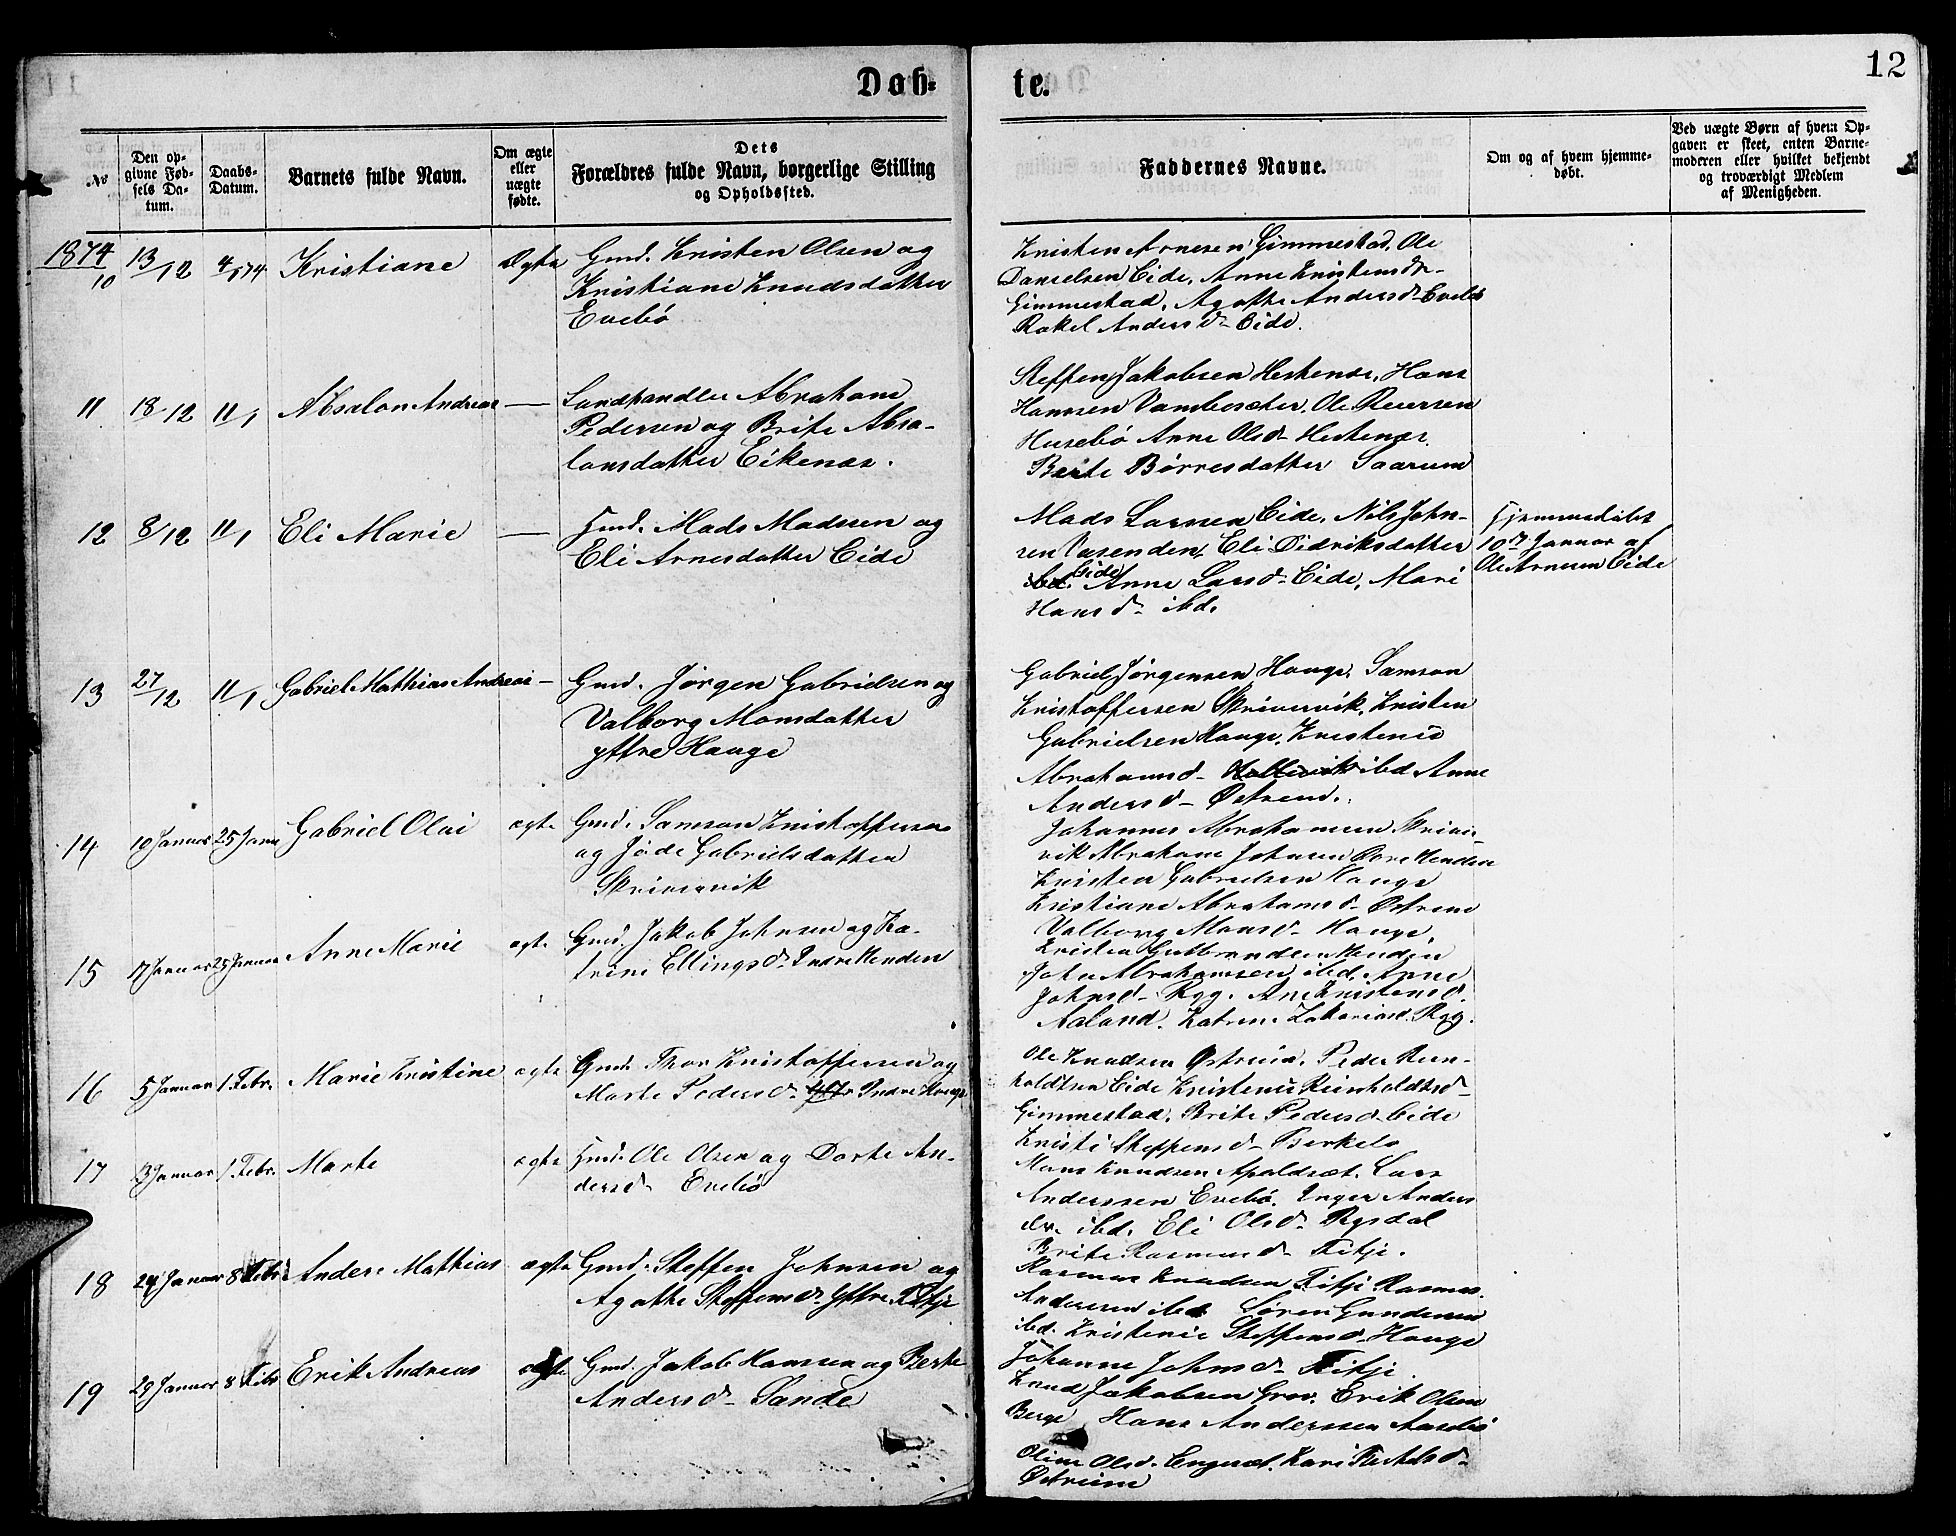 12
Døb-
te.
No
Den op-
givne Fød-
sels Da-
tum.
Daabs-
Datum.
Barnets fulde Navn.
Om ægte
eller
uægte
fødte.
Dets
Forældres fulde Navn, borgerlige Stilling
og Opholdssted.
Faddernes Navne.
Om og af hvem hjemme-
døbt.
Ved uægte Børn af hvem Op-
gaven er skeet, enten Barne-
moderen eller hvilket bekjendt
og troværdigt Medlem
af Menigheden.
1874
10 13/12 4/1 74 Kristiane Ægte Gmd. Kristen Olsen og
Kristiane Knudsdatter
Evebø
Kristen Arnesen Gimmestad, Ole
Danielsen Eide, Anne Kristensdr-
Gimmestad, Agathe Andersd- Evebø
Rakel Andersd- Eide.
11 18/12 11/1 Absalon Andreas — Landhandler Abraham
Pedersen og Brite Absa-
lonsdatter Eikenæs.
Steffen Jakobsen Hestenæs, Hans
Hansen Vambesæter, Ole
Husebø Anne Olsd- Hestenæs.
Berte Børresdatter
12 8/12 11/1 Eli Marie — Hmd. Mads Madssen og
Eli Arnesdatter Eide
Mads Larssen Eide, Nils John-
sen Vasenden, Eli Didriksdatter
ibd. Eide Anne Larsd- Eide, Mari
Hansd- ibd.
Hjemmedøbt
10de Januar af
Ole Arnesen Eide
13 27/12 11/1 Gabriel Mathias Andreas — Gmd. Jørgen Gabrielsen og
Valborg Monsdatter
yttre Hauge
Gabriel Jørgensen Hauge, Samson
Kristoffersen Skrivervik, Kristen
Gabrielsen Hauge, Kristense
Abrahamsd- ibd Anne
Andersd- Østrem.
14 10 Januar 25 Janu Gabriel Olai ægte Gmd. Samson Kristoffersen
og Jøde Gabrielsdatter
Skrivervik
Johannes Abrahamsen Skriver-
vik Abraham Johnsen Øvre Henden
Kristen Gabrielsen Hauge
Kristiane Abrahamsd- Østrem
Valborg Monsd- Hauge.
15 17 Januar 25 Januar Anne Marie ægte Gmd. Jakob Johnsen og Ka-
trine Ellingsd- Indre Henden
Kristen Gulbrandsen Henden
John Abrahamsen ibd. Anne
Johnsd- Ryg. Ane Kristensd.
Aaland. Katrine Zakariasd. Ryg.
16 5 Januar 1 Febr. Marie Kristine ægte Gmd. Thor Kristoffersen og
Marte Pedersd- yttre Indre Hauge
Ole Knudsen Østrem. Peder Rein-
holdtsen Eide Kristense Reinholdtsd-
Gimmestad, Brite Pedersd- Eide
Kristi Steffensd-
17 13 Januar 1 Febr. Marte ægte Hmd. Ole Olsen og Dorte An-
dersd- Evebø
Mons Knudsen Apaldsæt. Lars
Anderssen Evebø. Inger Anders
dr. ibd. Eli Olsd- Rysdal
Brite Rasmusd- Fitje.
18 24 Januar 8 Febr Anders Mathias ægte Gmd. Steffen Johnsen og
Agathe Steffensd- Yttre Fitje
Rasmus Knudsen Fitje Rasmus
Anderssen ibd. Søren Gundersen
ibd. Kristense Steffensd- Hauge
Johanne Johnsd- Fitje.
19 29 Januar 8 Febr Erik Andreas ægte Gmd. Jakob Hanssen og Berte
Andersd- Sande
Knud Jakobsen Grov. Erik Olsen
Berge Hans Anderssen
Oline Olsd. Kari